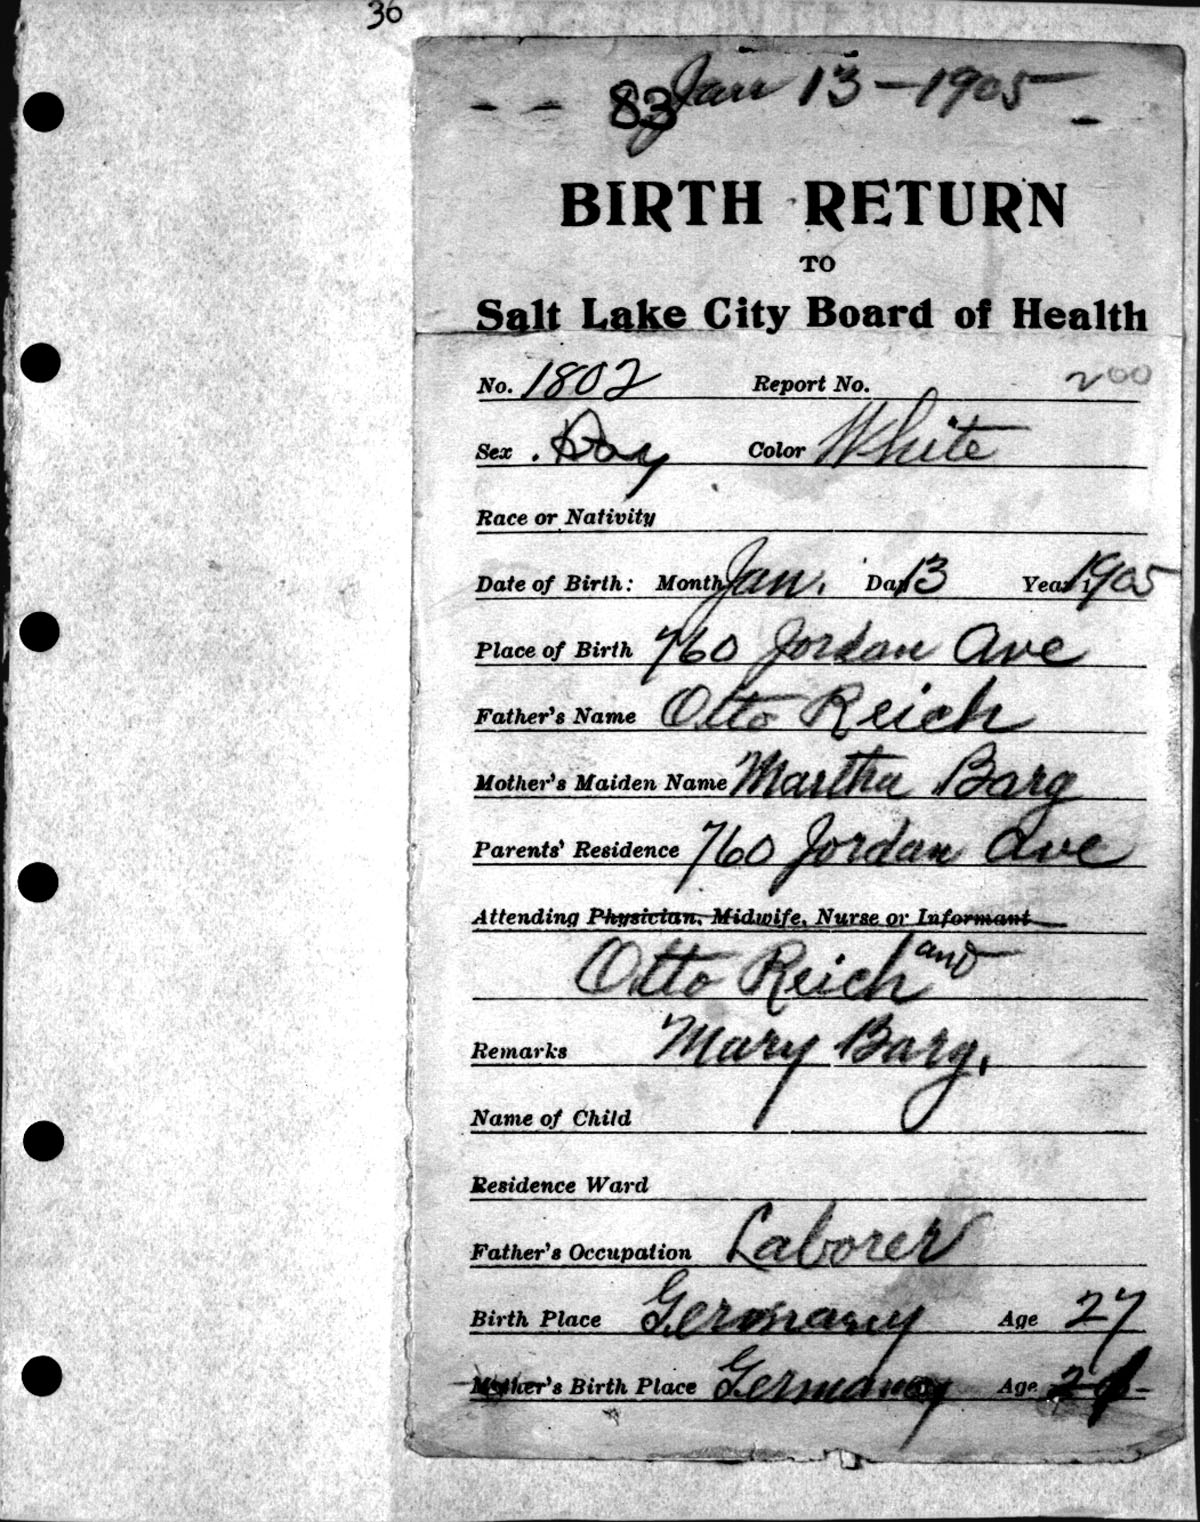 36
83 Jan 13-1905
BIRTH RETURN
TO
Salt Lake City Board of Health
No. 1802 Report No. 200
Sex . Boy Color White
Race or Nativity
Date of Birth: Month Jan. Day 13 Year 1905
Place of Birth 760 Jordan Ave
Father's Name Otto Reich
Mother's Maiden Name Martha Barg
Parents' Residence 760 Jordan Ave
Attending Physician, Midwife, Nurse or Informant
Otto Reich and
Remarks Mary Barg.
Name of Child
Residence Ward
Father's Occupation Laborer
Birth Place Germany Age 27
Mother's Birth Place Germany Age